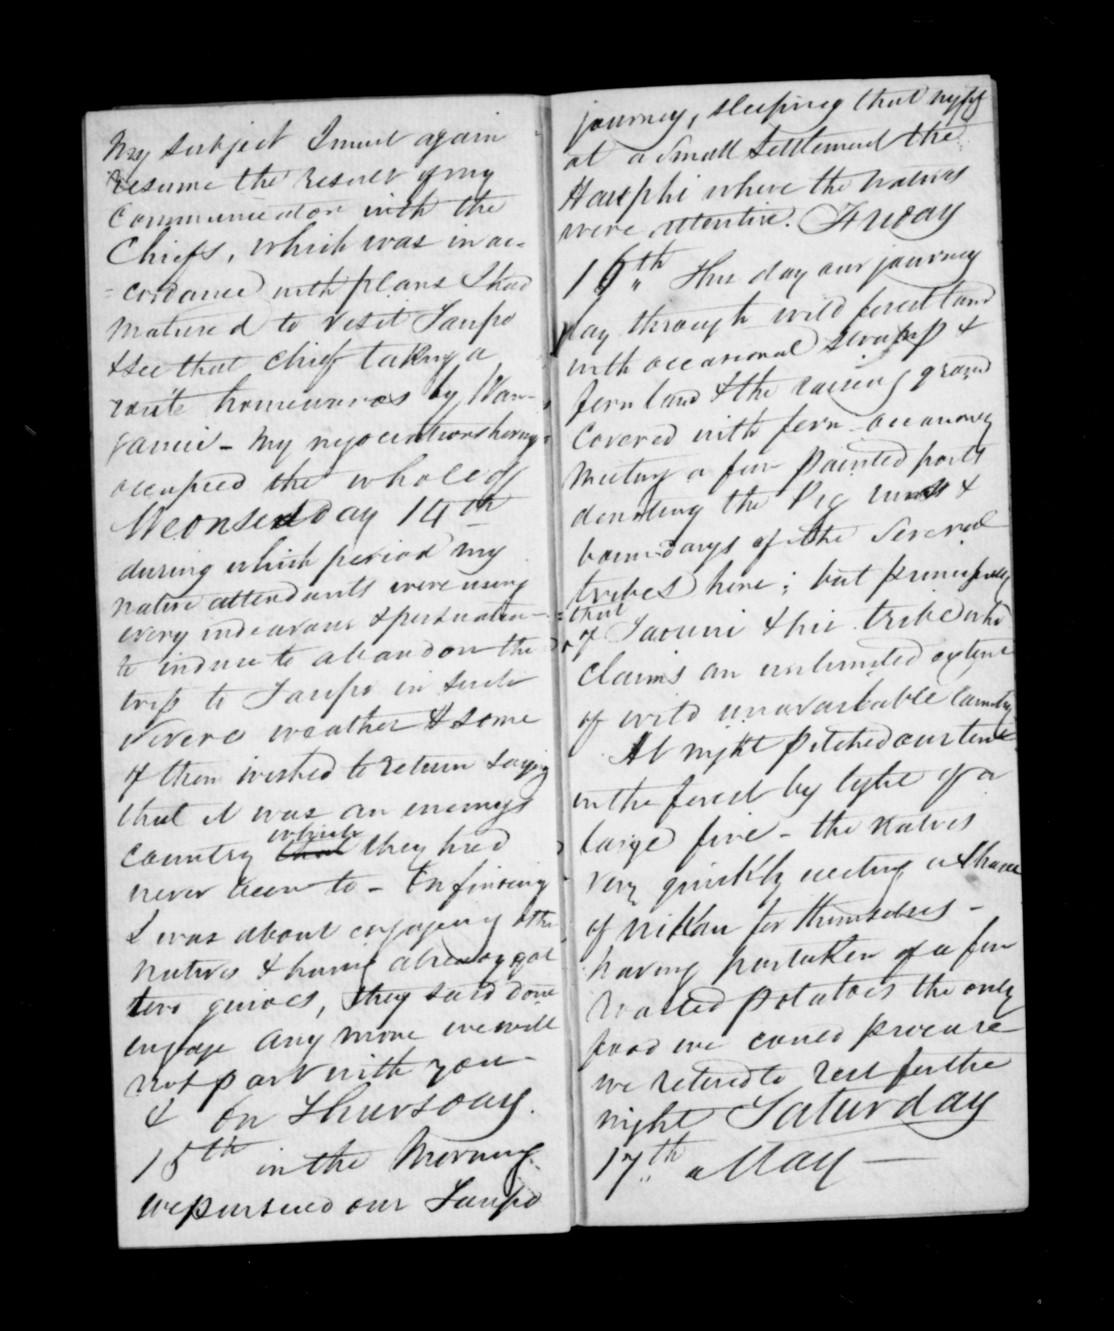 My subject I must again
resume the result of my
communication with the
Chiefs, which was in ac-
=cordance with plans I had
matured to visit Taupo
& see that chief taking a
route homewards by Wan-
ganui - My negociations having
occupied the whole of
Wednesday 14th
during which period my
native attendants were using
every indeavour & persuation
to induce to abandon the
trip to Taupo in such
severe weather & some
of them wished to return saying
that it was an enemys
country which they had
never been to - On finding
I was about engaging other
natives & having already got
two guides, they said dont
engage any more we will
not part with you
& On Thursday.
15th in the Morning
we pursued our Taupo
journey, sleeping that night
at a small settlement the
where the natives
were attentive. Friday
16th This day our journey
lay through wild forest land
with occasional swamp &
fern land & the raising ground
covered with fern occasionaly
meeting a few painted posts
denoting the Pig runs &
boundarys of the several
tribes here; but principally
that
of Taouri & his tribe who
claims an unlimited extent
of wild unavailable Country
At night pitched our tent
in the forest by light of a
large fire - the natives
very quickly erecting a
of nikau for themselves -
having partaken of a few
roasted potatoes the only
food we could procure
we retired to rest for the
night Saturday
17th May —